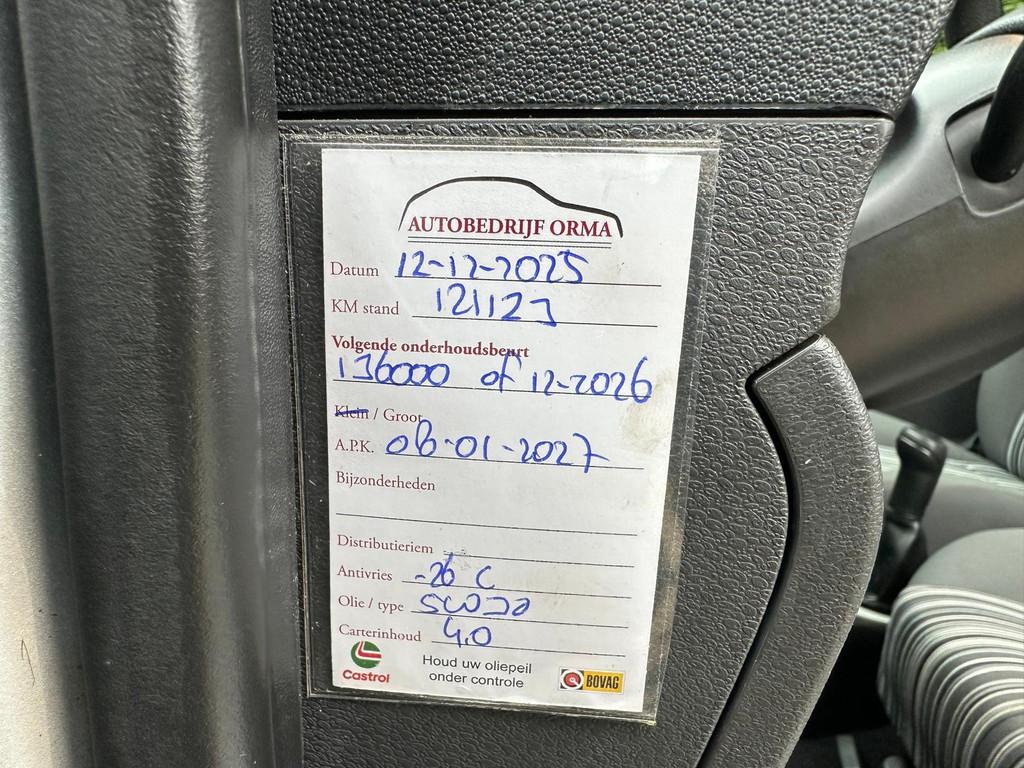 AUTOBEDRIJF ORMA
Datum 12-12-2025
KM stand 121123
Volgende onderhoudsbeurt
136000 of 12-2026
Klein / Groot
A.P.K. 08-01-2027
Bijzonderheden
Distributieriem
Antivries -26 C
Olie / type 5W30
Carterinhoud 4.0
Castrol
Houd uw oliepeil
onder controle
BOVAG